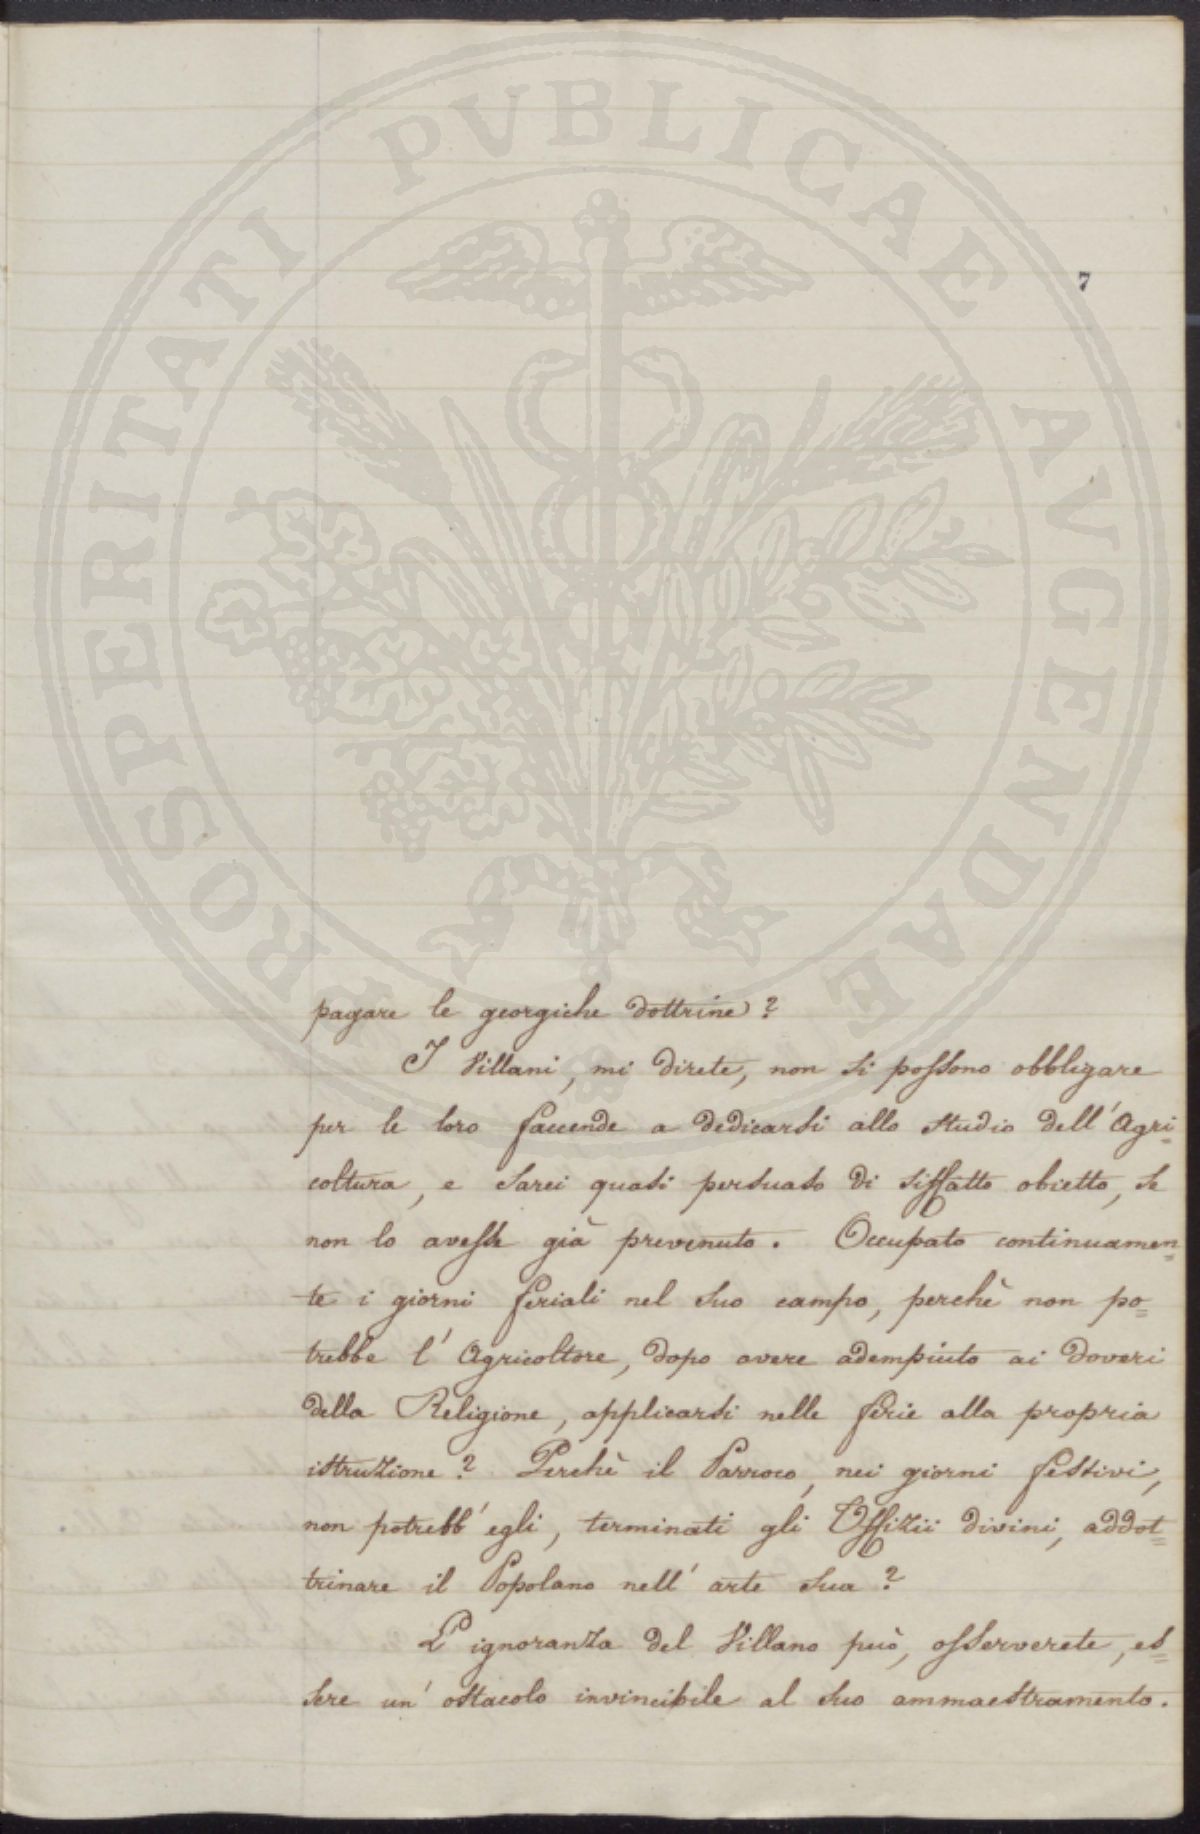 PROSPERITATI PUBLICAE AVGENDAE
7
pagare le georgiche dottrine?
I Villani, mi direte, non si possono obbligare
per le loro faccende a dedicarsi allo studio dell'Agri=
coltura, e sarei quasi persuaso di siffatto obietto, se
non lo avesse già prevenuto. Occupato continuamen=
te i giorni feriali nel suo campo, perchè non po=
trebbe l'Agricoltore, dopo avere adempiuto ai doveri
della Religione, applicarsi nelle ferie alla propria
istruzione? Perchè il Parroco, nei giorni festivi,
non potrebb'egli, terminati gli Offizii divini, addot=
trinare il Popolano nell'arte sua?
L'ignoranza del Villano può, osserverete, es=
sere un'ostacolo invincibile al suo ammaestramento.